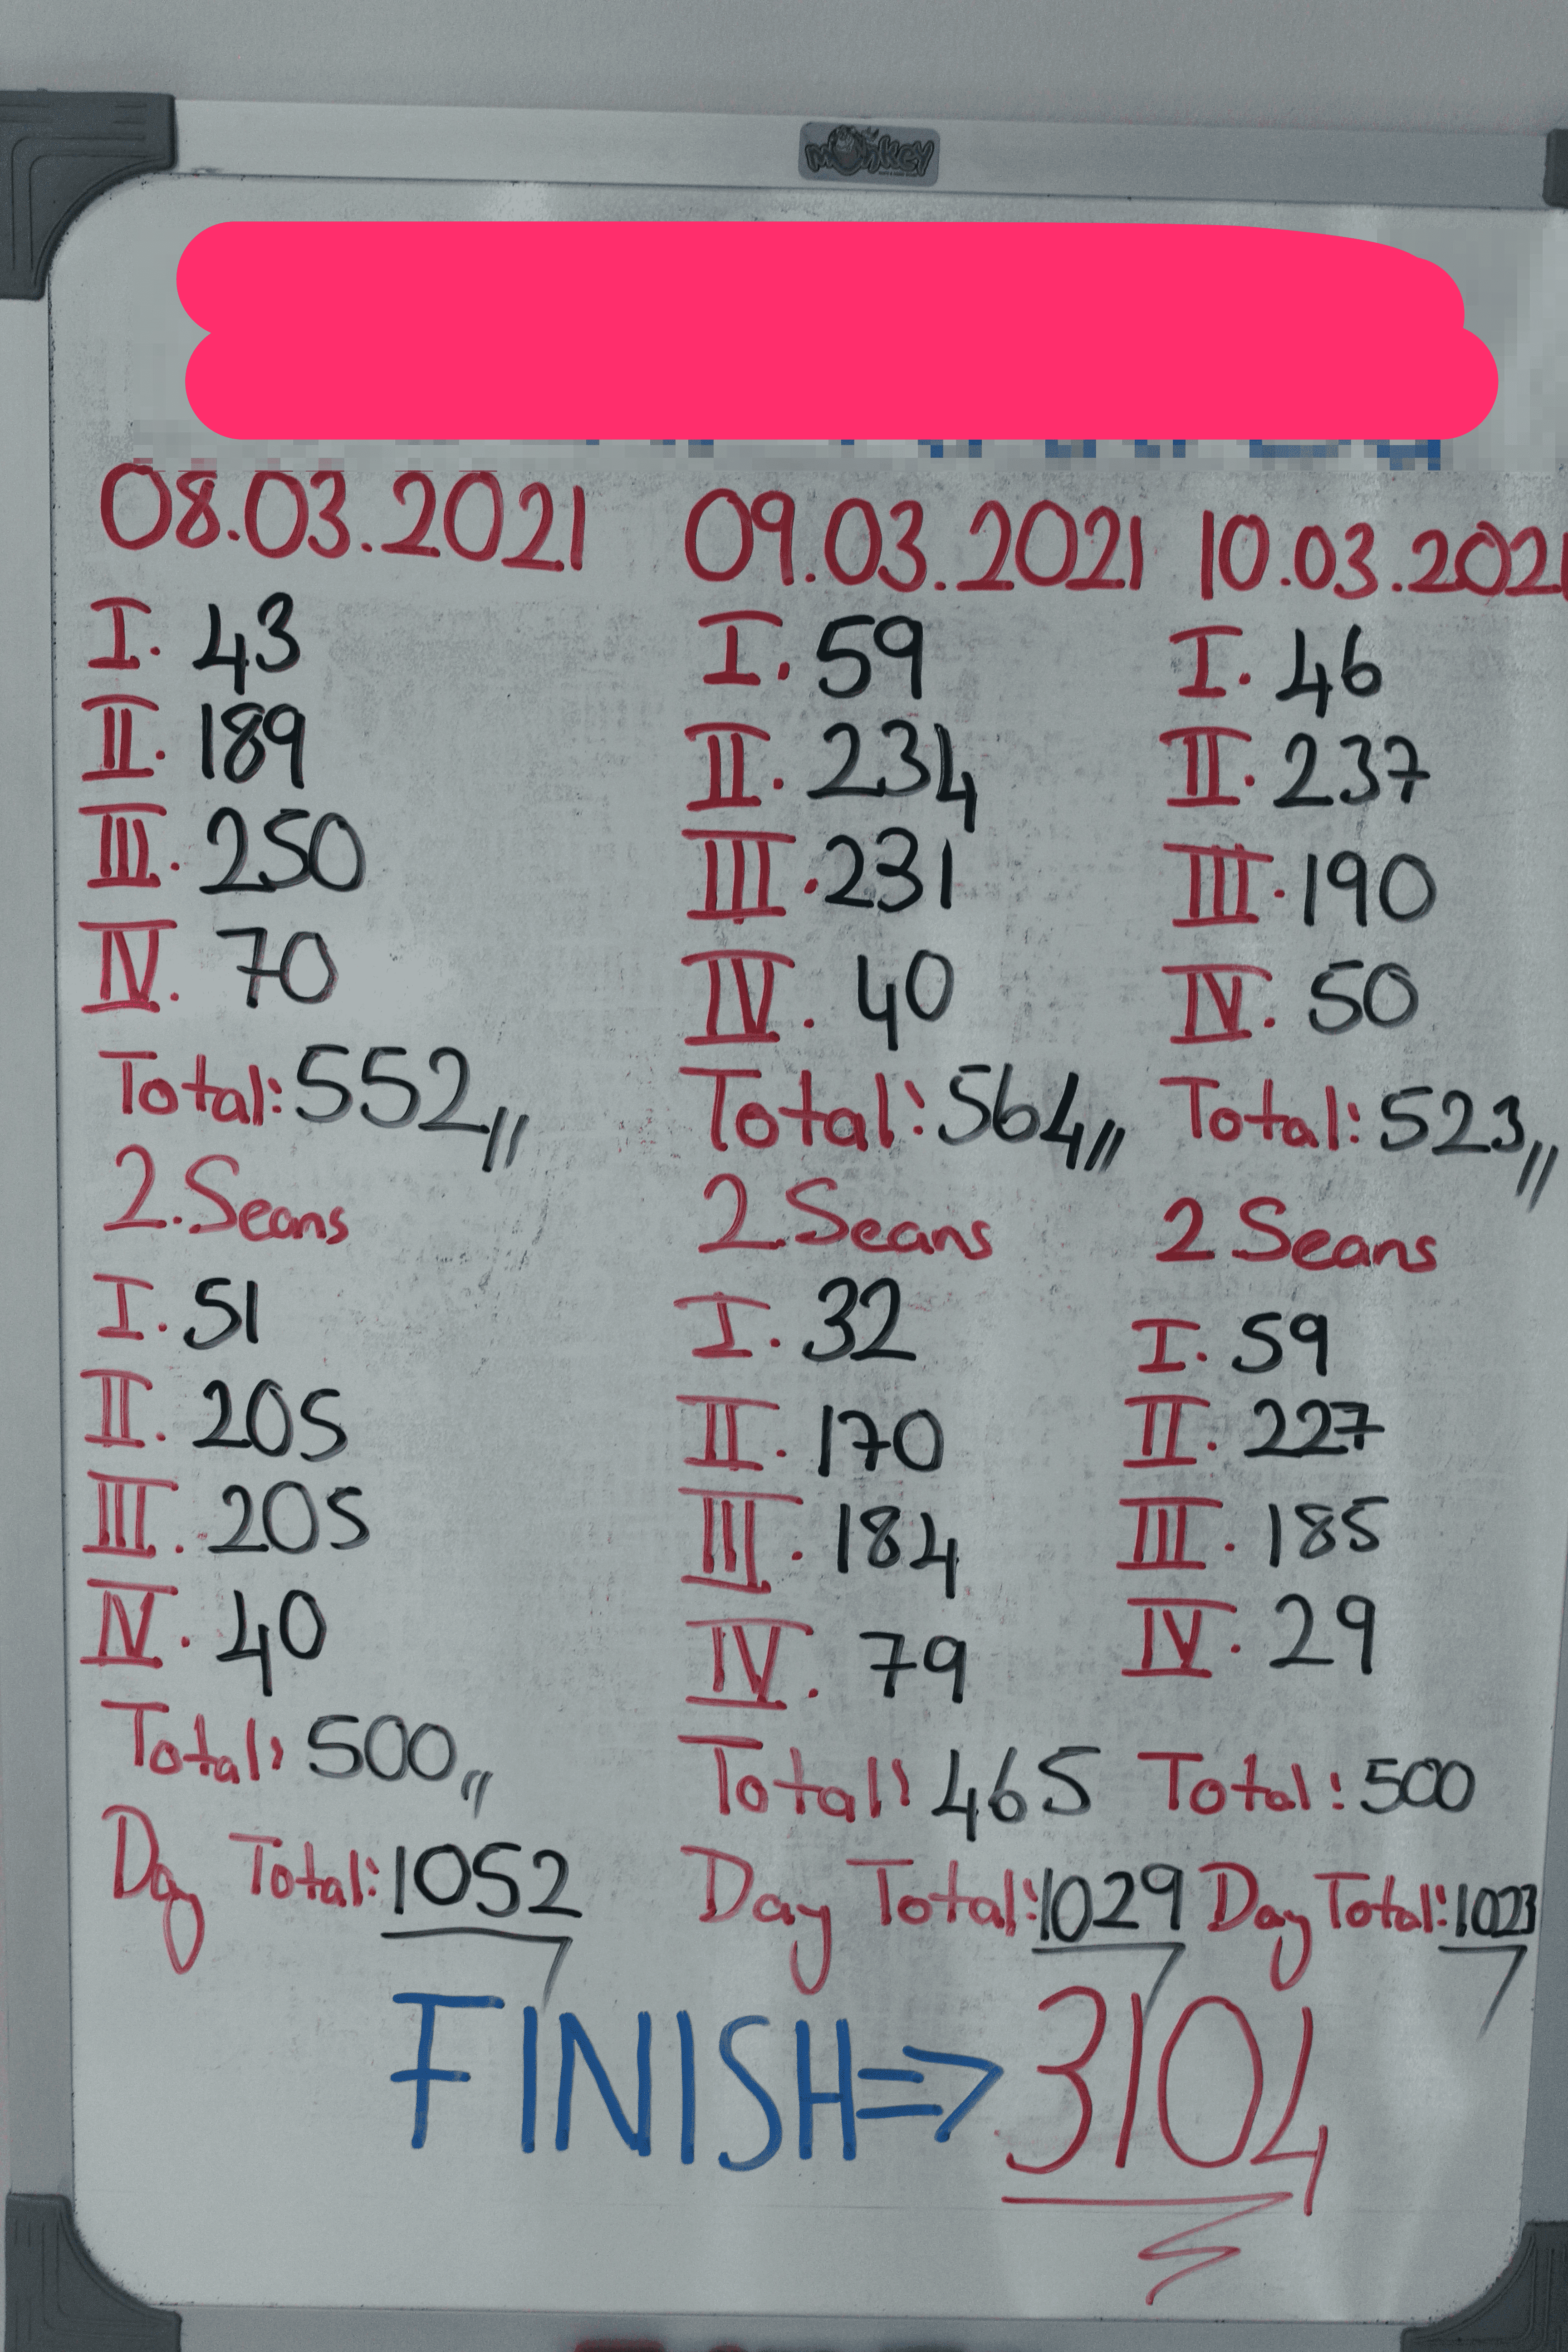 MONKEY
08.03.2021
I. 43
II. 189
III. 250
IV. 70
Total: 552,,
2. Seans
I. 51
II. 205
III. 205
IV. 40
Total: 500,,
Day Total: 1052
09.03.2021
I. 59
II. 234
III. 231
IV. 40
Total: 564,,
2. Seans
I. 32
II. 170
III. 184
IV. 79
Total: 465
Day Total: 1029
10.03.2021
I. 46
II. 237
III. 190
IV. 50
Total: 523,,
2 Seans
I. 59
II. 227
III. 185
IV. 29
Total: 500
Day Total: 1023
FINISH => 3104